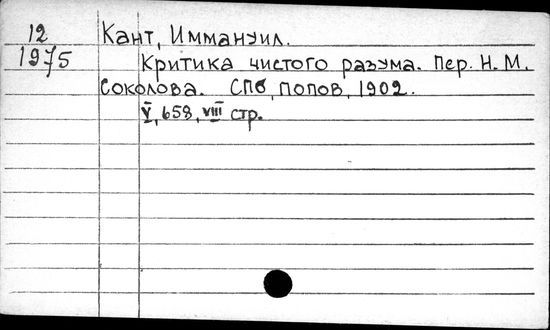 12 Кант, Иммануил.
1975 Критика чистого разума. Пер. Н. М.
Соколова. СПб, Попов, 1902.
V, 658, VIII стр.